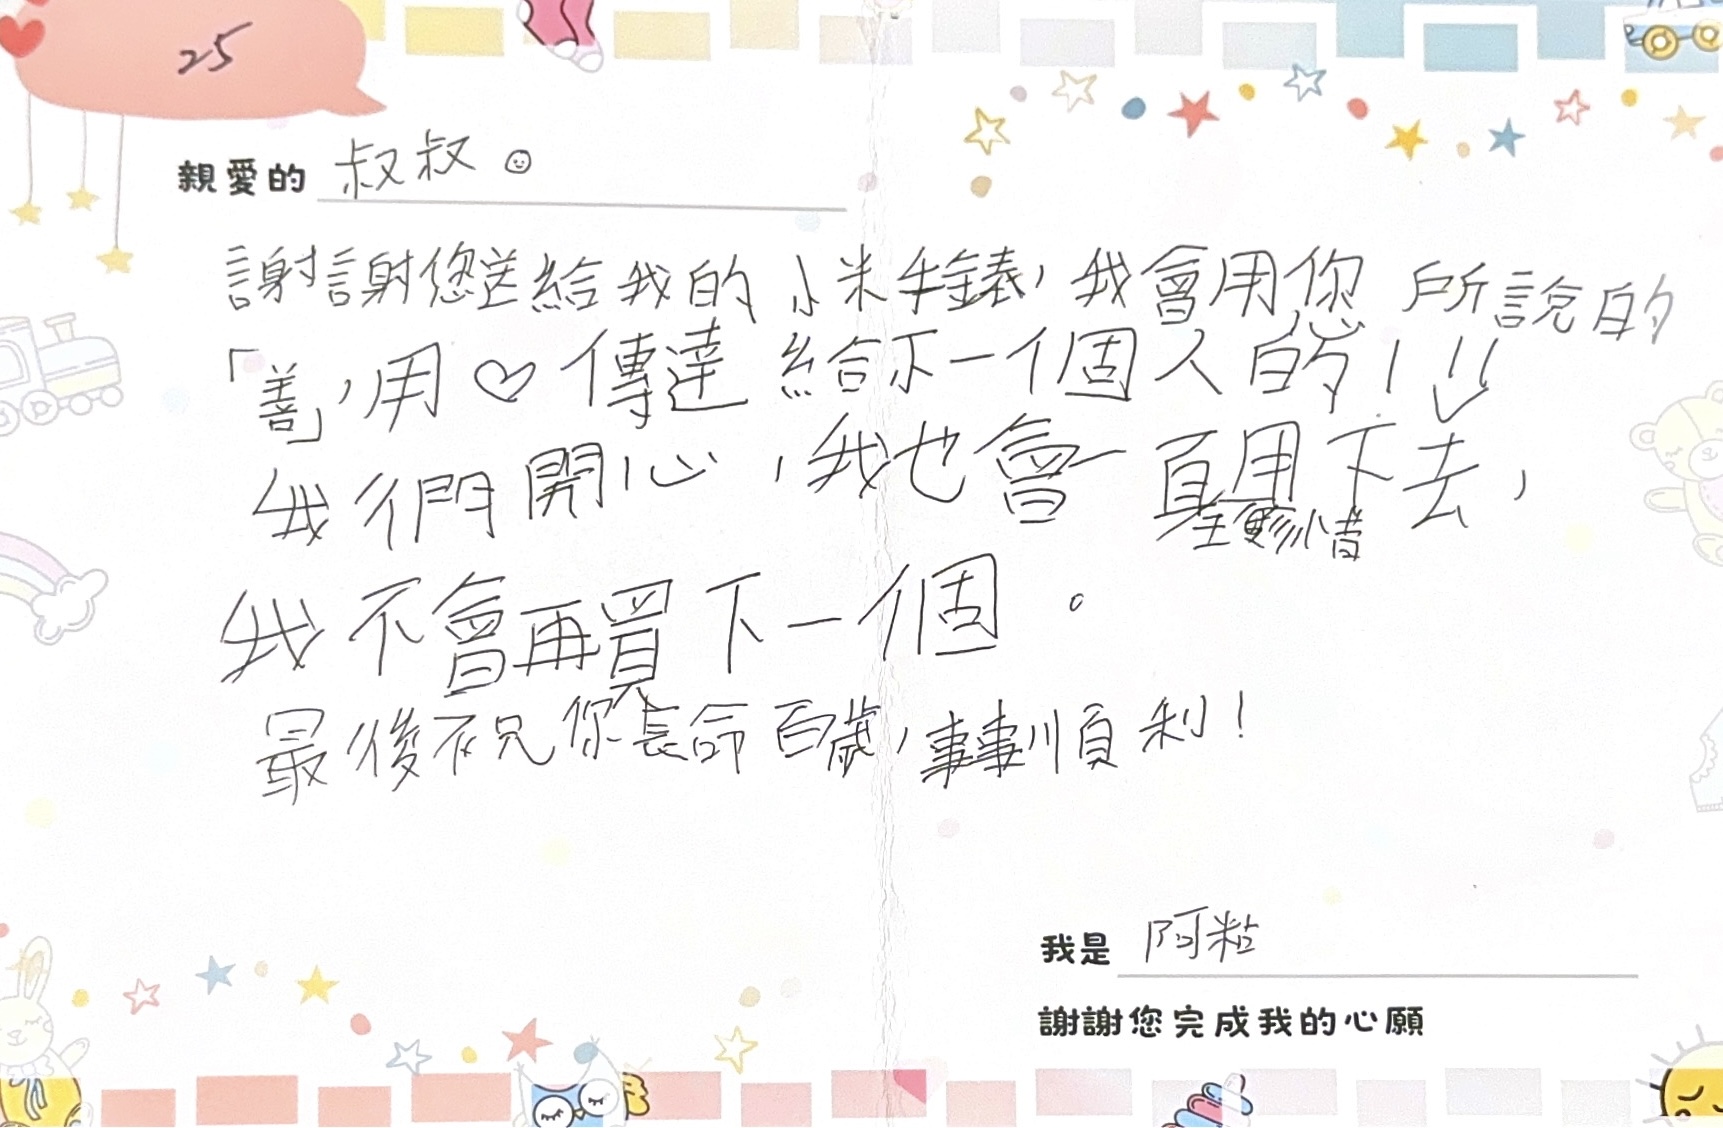 25
親愛的 叔叔。
謝謝您送給我的小米手錶,我會用您所說的
「善」,用♡傳達給下一個人的!!!
我們開心,我也會一直用下去,
更珍惜
我不會再買下一個。
最後祝你長命百歲,事事順利!
我是 阿粘
謝謝您完成我的心願